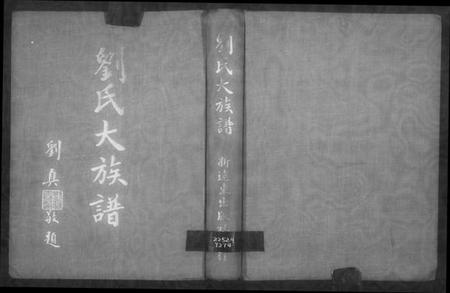 劉氏大族譜
劉真敬題
劉氏大族譜 新遠東出版社
22524
7274